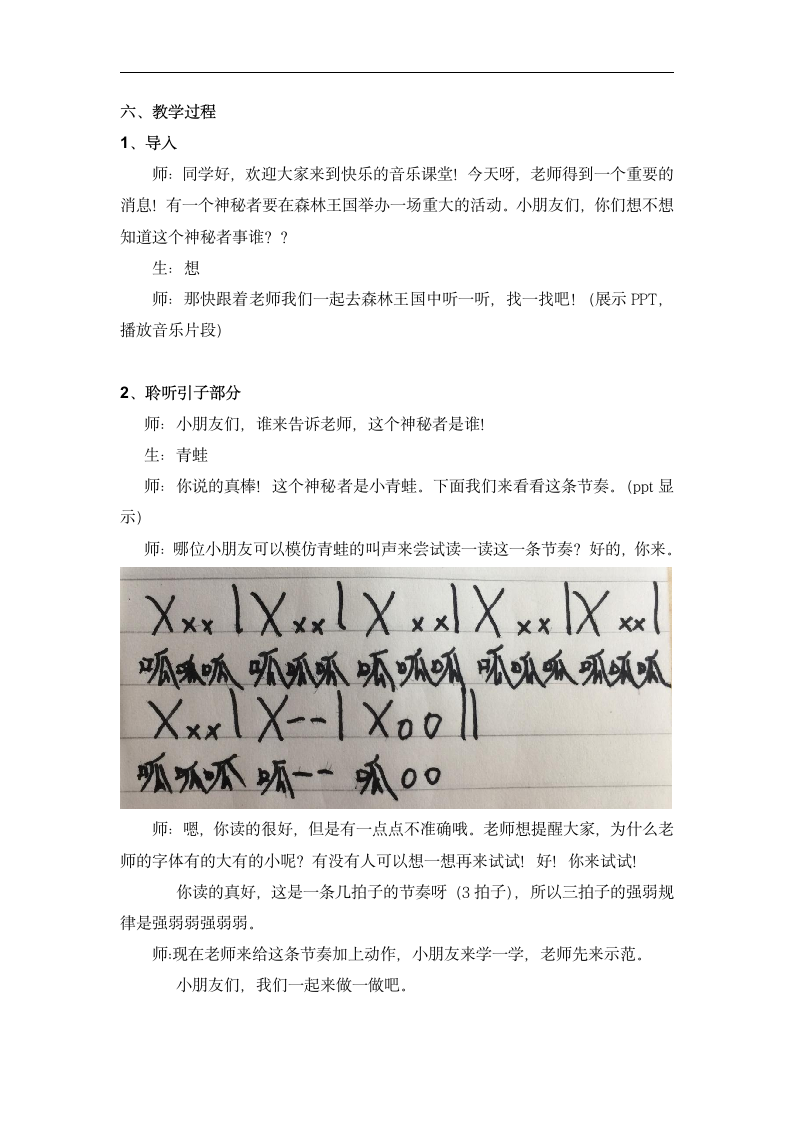 六、教学过程
1、导入
师：同学好，欢迎大家来到快乐的音乐课堂！今天呀，老师得到一个重要的
消息！有一个神秘者要在森林王国举办一场重大的活动。小朋友们，你们想不想
知道这个神秘者事谁？？
生：想
师：那快跟着老师我们一起去森林王国中听一听，找一找吧！（展示 PPT，
播放音乐片段）
2、聆听引子部分
师：小朋友们，谁来告诉老师，这个神秘者是谁！
生：青蛙
师：你说的真棒！这个神秘者是小青蛙。下面我们来看看这条节奏。（ppt 显
示）
师：哪位小朋友可以模仿青蛙的叫声来尝试读一读这一条节奏？好的，你来。
X x x | X x x | X x x | X x x | X x x |
呱呱呱 呱呱呱 呱呱呱 呱呱呱 呱呱呱
X x x | X - - | X 0 0 ||
呱呱呱 呱 - - 呱 0 0
师：嗯，你读的很好，但是有一点点不准确哦。老师想提醒大家，为什么老
师的字体有的大有的小呢？有没有人可以想一想再来试试！好！你来试试！
你读的真好，这是一条几拍子的节奏呀（3 拍子），所以三拍子的强弱规
律是强弱弱强弱弱。
师:现在老师来给这条节奏加上动作，小朋友来学一学，老师先来示范。
小朋友们，我们一起来做一做吧。